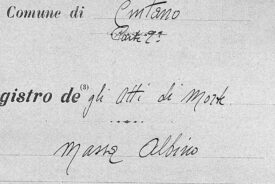 Comune di Cintano
Parte 2ª
gistro de(8)gli Atti di Morte.
Massa Albino